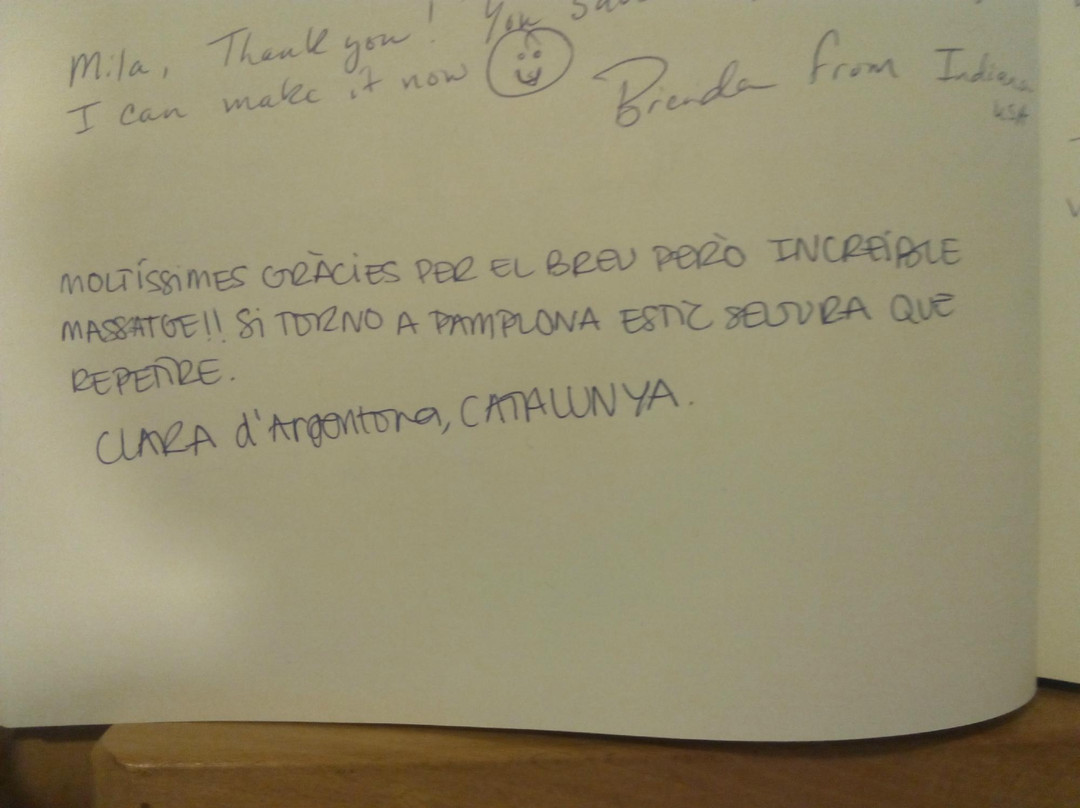 Mila, Thank you! You
I can make it now Brenda from Indiana
USA
MOLTÍSSIMES GRÀCIES PER EL BREU PERÒ INCREÍBLE
MASSATGE!! Si TORNO A PAMPLONA ESTIC SEGURA QUE
REPETIRE.
CLARA d'Argentona, CATALUNYA.